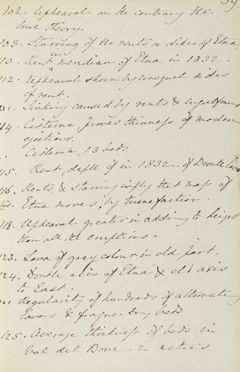 59
102. Upheaval on the contrary the
true theory.
103. Starring of the rents or dikes of Etna
110. Rent meridian of Etna in 1832.
112. Upheaval shown by unequal sides
of rent.
Sinking caused by rents &
114. Cisterna proves thinness of modern
Cisterna, 13 beds
115. Rent, depth of in 1832.
116. Rents, & starring imply that mass of
Etna moves, by tumefaction.
118. Upheaval greater in adding to height
than all the eruptions.
123. Lava of grey colour in old part.
124. Double axis of Etna & old axis
to East.
Regularity of hundreds of alternating
lavas & fragmentary beds
125. Average thickness of beds in
Val del Bove. 2 metres